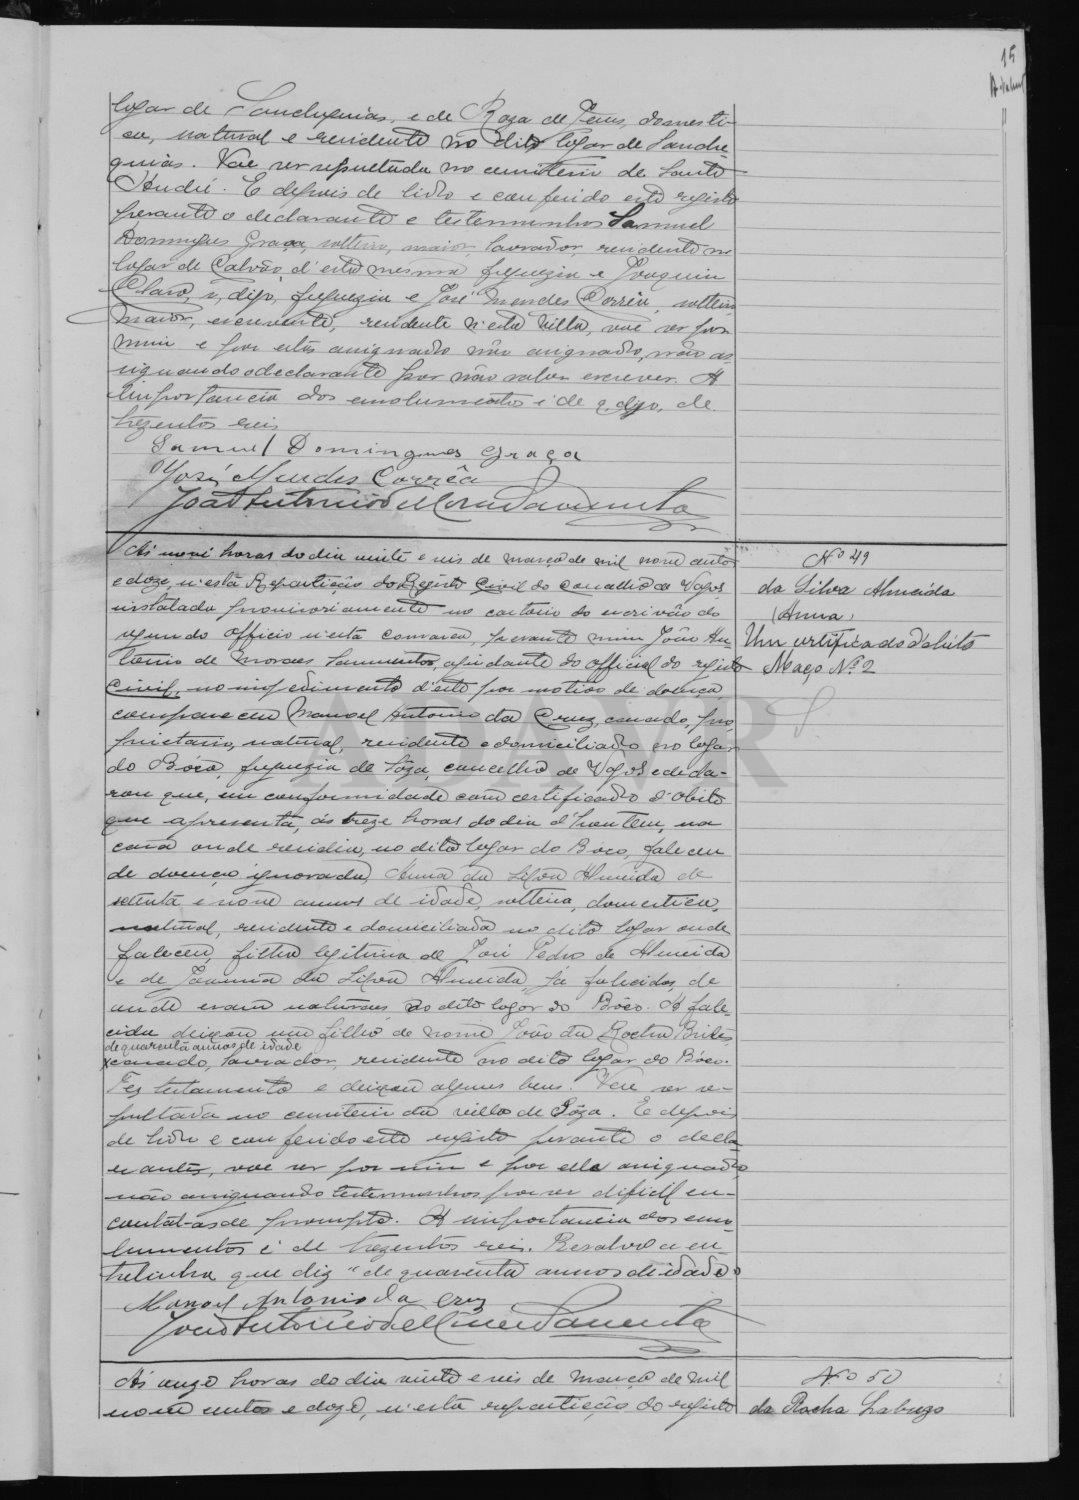 15
logar de Sanchequias, e de Roza de Jesus, domesti-
ca, natural e residente no dito logar de Sanche-
quias. Vae ser sepultada no cemiterio de Santo
André. E depois de lido e conferido este registo
perante o declarante e testemunhas Samuel
Domingues Graça, solteiro, maior, lavrador, residente no
logar de Calvão, d'esta mesma freguezia e Joaquim
Claro, s, digo, freguezia e José Mendes Corrêa, solteiro,
maior, escrevente, residente n'esta villa, vae ser por
mim e por estes assignado não assignado, não as-
signando o declarante por não saber escrever. A
importancia dos emolumentos é de q, digo, de
trezentos reis
Samuel Domingues Graça
José Mendes Corrêa
João Antonio de Moraes Sarmento
Ás nove horas do dia vinte e seis de março de mil nove centos
e doze, n'esta Repartição do Registo Civil do concelho de Vagos,
installada provisoriamente no cartorio do escrivão do
segundo officio n'esta comarca, perante mim João An-
tonio de Moraes Sarmento, ajudante do official do registo
civil, no impedimento d'este por motivo de doença,
compareceu Manoel Antonio da Cruz, casado, pro-
prietario, natural, residente e domiciliado no logar
do Bôco, freguezia de Sôza, concelho de Vagos e decla-
rou que, em conformidade com certificado d'obito
que apresenta, ás treze horas do dia d'hontem, na
casa onde residia, no dito logar do Boco, faleceu
de doença ignorada, Anna da Silva Almeida de
setenta e nove annos de idade, solteira, domestica,
natural, residente e domiciliada no dito logar onde
faleceu, filha legitima de José Pedro de Almeida
e de Joanna da Silva Almeida, já falecidos, de
onde eram naturaes do dito logar do Bôco. A fale-
cida deixou um filho de nome João da Rocha Brites
de quarenta annos de idade
casado, lavrador, residente no dito logar do Bôco.
Fez testamento e deixou alguns bens. Vae ser se-
pultada no cemiterio da villa de Sôza. E depois
de lido e conferido este registo perante o decla-
rante, vae ser por mim e por elle assignado,
não assignando testemunhas por ser dificil en-
contral-as de prompto. A importancia dos emo-
lumentos é de trezentos reis. Resalvo a en-
trelinha que diz "de quarenta annos de idade"
Manoel Antonio da Cruz
João Antonio de Moraes Sarmento
Nº 49
da Silva Almeida
(Anna)
Um certificado d'obito
Maço Nº 2
Ás onze horas do dia vinte e seis de março de mil
nove centos e doze, n'esta repartição do registo
Nº 50
da Rocha
ADAVR